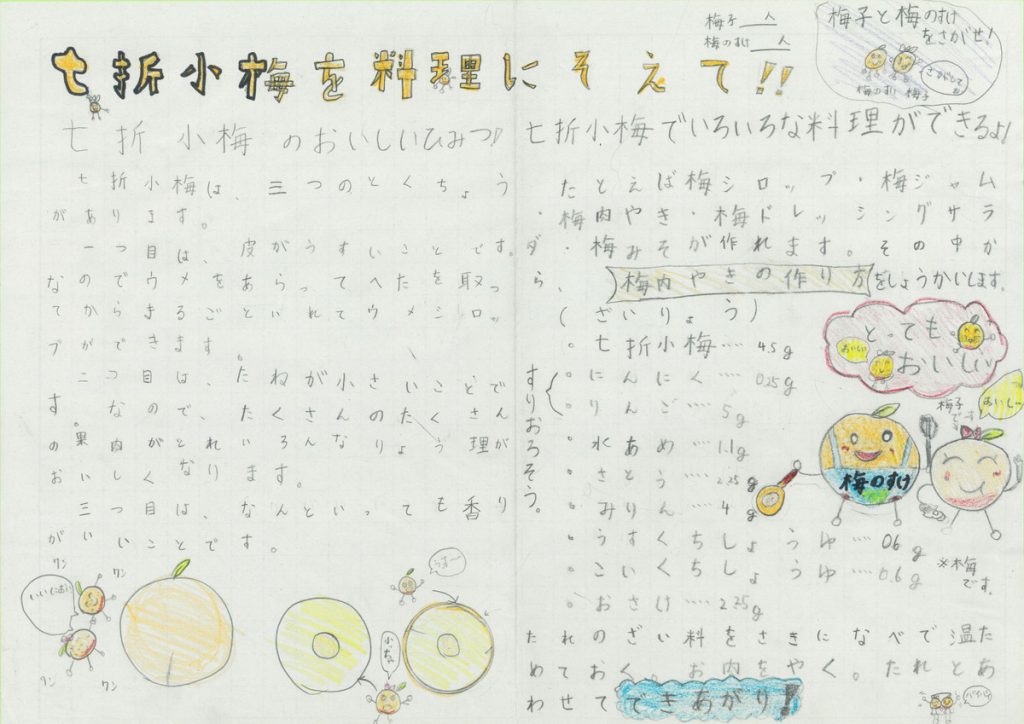 七折小梅を料理にそえて!!
梅子__人
梅のすけ__人
梅子と梅のすけ
をさがせ!
さがしてね
梅のすけ 梅子
七折小梅のおいしいひみつ!
七折小梅は、三つのとくちょう
があります。
一つ目は、皮がうすいことです。
なのでウメをあらってへたを取っ
てからまるごといれてウメシロッ
プができます。
二つ目は、たねが小さいことで
す。なので、たくさんのたくさん
の果肉がとれいろんなりょう理が
おいしくなります。
三つ目は、なんといっても香り
がいいことです。
ワン
ワン
いいにおい
ワン
ワン
うすーい
小っちゃ
七折小梅でいろいろな料理ができるよ!
たとえば梅シロップ・梅ジャム
・梅肉やき・梅ドレッシングサラ
ダ・梅みそが作れます。その中か
ら、梅肉やきの作り方をしょうかいします。
(ざいりょう)
。七折小梅……45g
。にんにく……0.25g
。りんご……5g
すりおろそう。
。水あめ……1.1g
。さとう……2.25g
。みりん……4g
。うすくちしょうゆ……0.6g
。こいくちしょうゆ……0.6g
。おさけ……2.25g
とっても
おいしい
おいしい
おいしー
梅子
です
梅のすけ
※梅
です。
たれのざい料をさきになべで温た
めておく。お肉をやく。たれとあ
わせてできあがり!
バイバイ